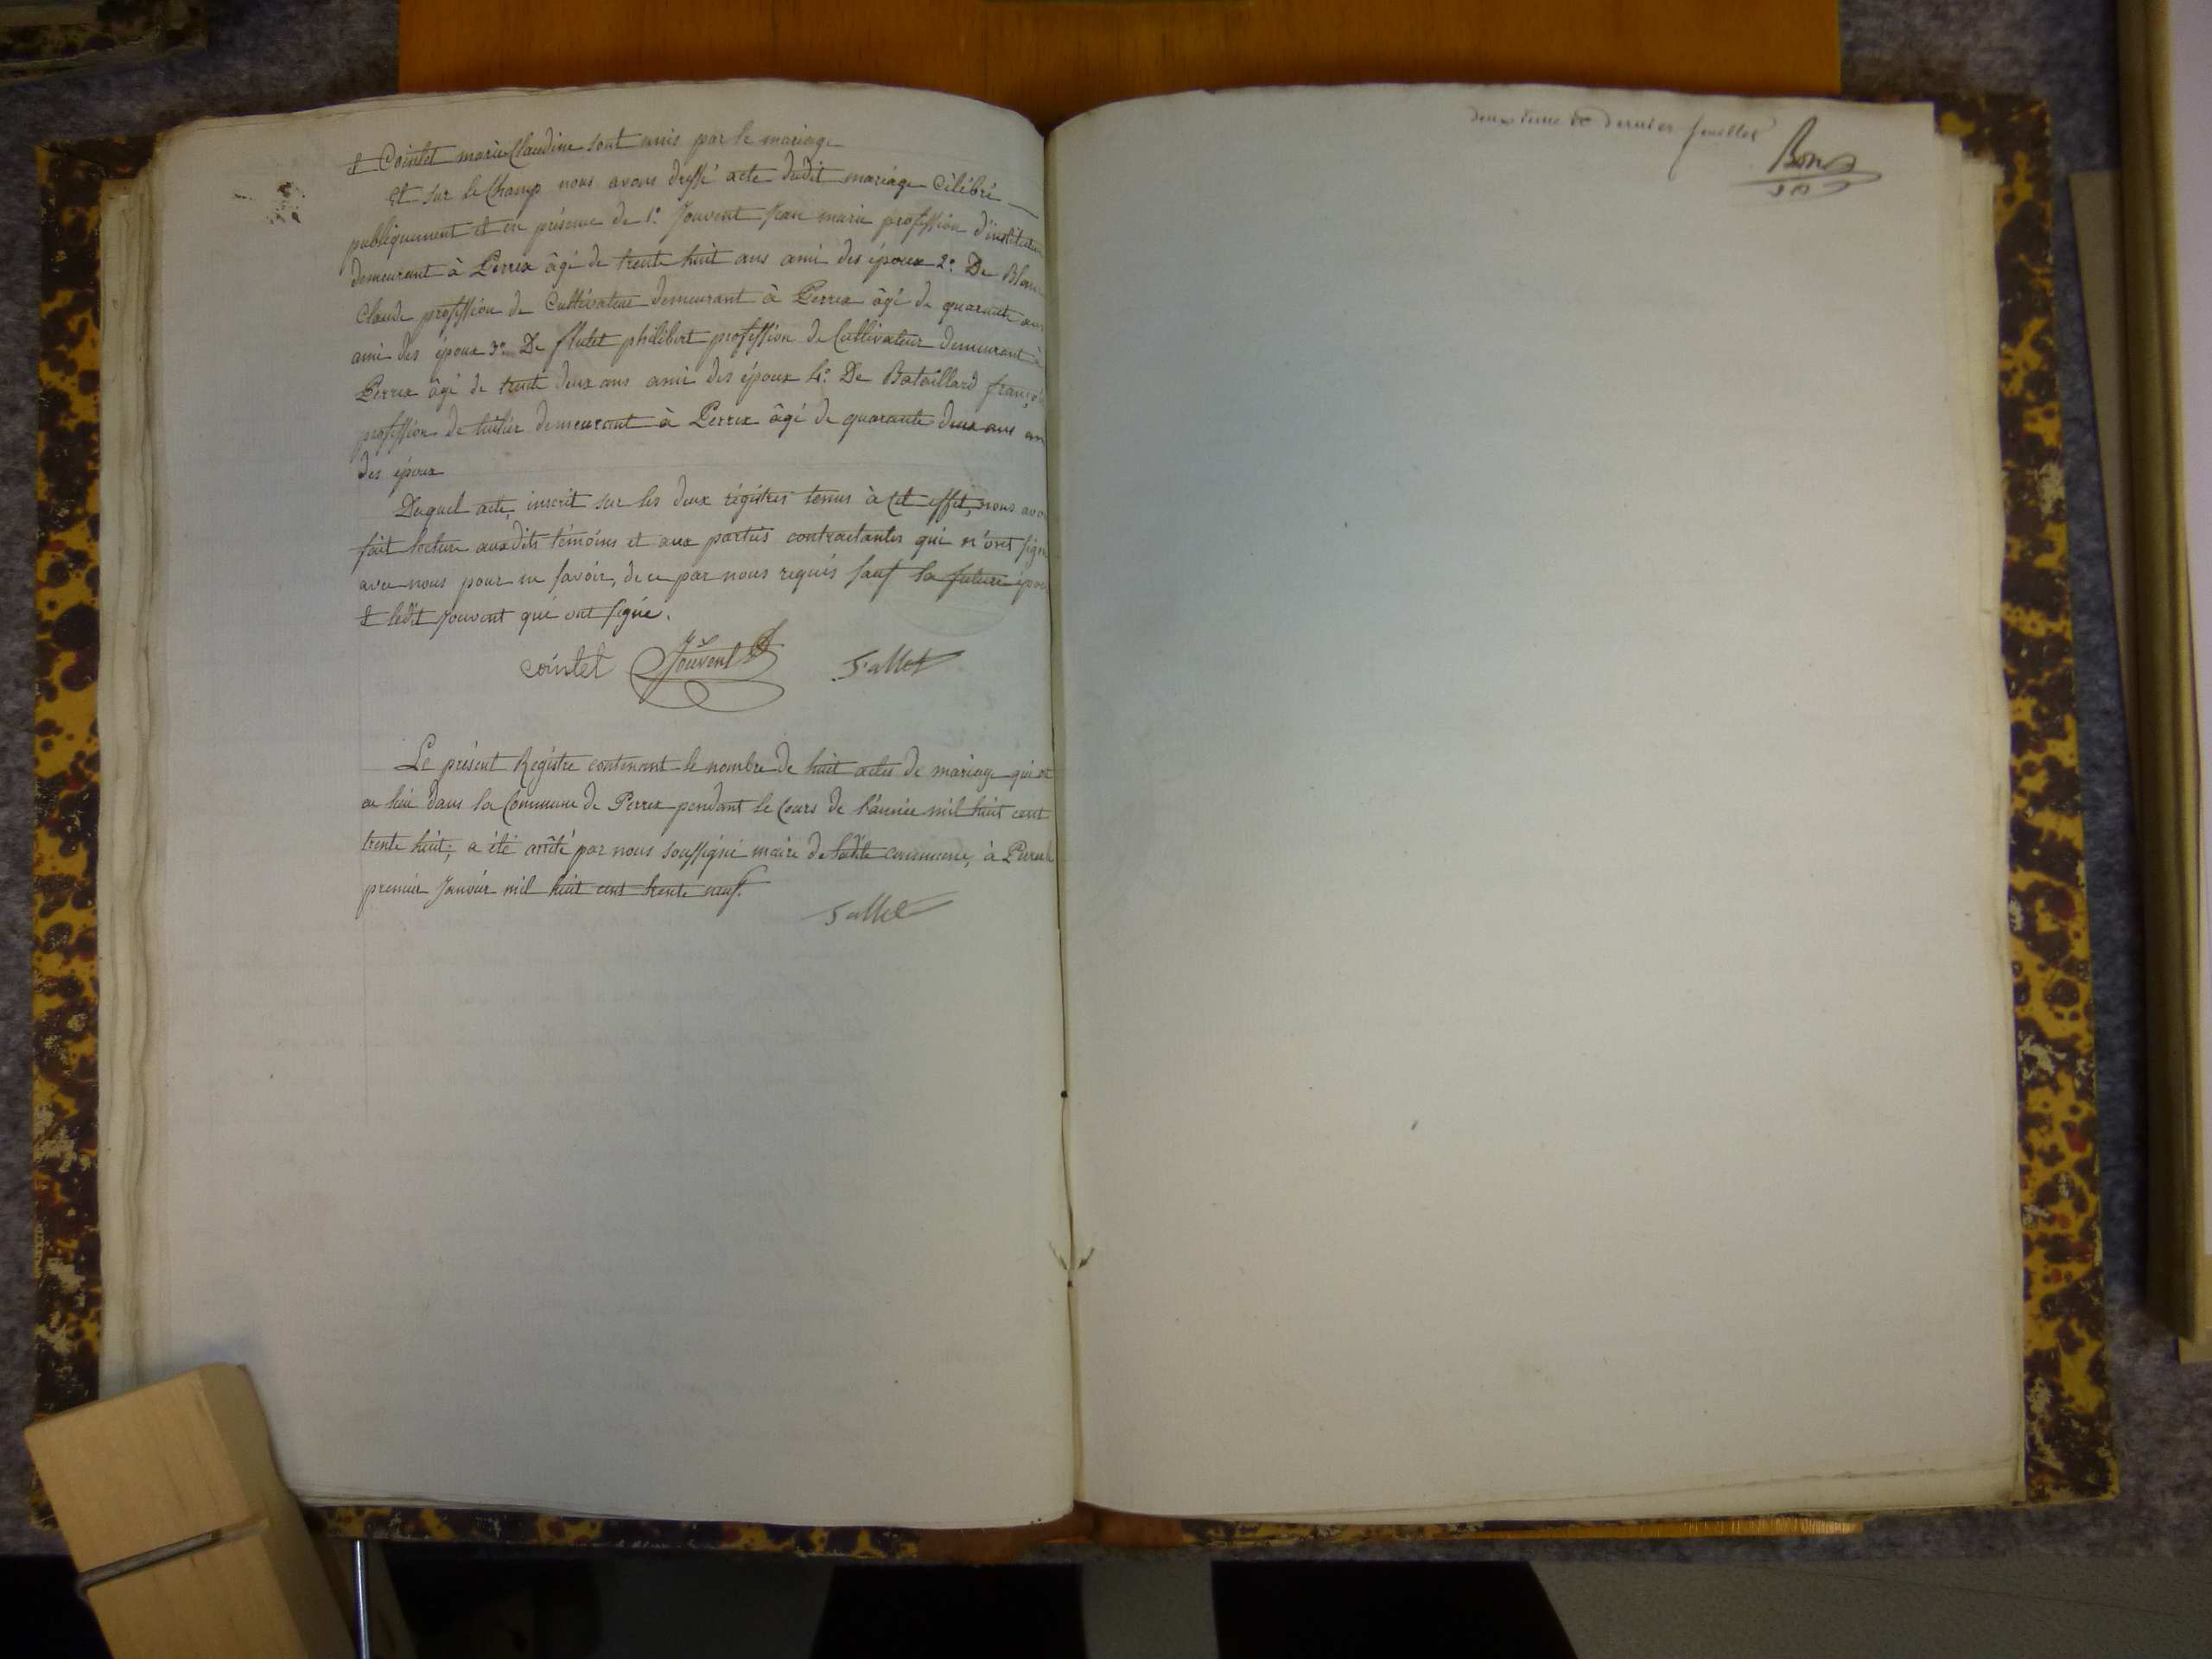 & Cointet marie Claudine sont unis par le mariage
et sur le Champ nous avons dressé acte dudit mariage Célébré
publiquement et en présence de 1.° Jouvent Jean marie profession d'instituteur
demeurant à Perrex âgé de trente huit ans ami des époux 2.° De Blanc
Claude profession de Cultivateur demeurant à Perrex âgé de quarante ans
ami des époux 3.° De flutet philibert profession de Cultivateur demeurant à
Perrex âgé de trente deux ans ami des époux 4.° De Bataillard françois
profession de tuilier demeurant à Perrex âgé de quarante deux ans ami
des époux
Duquel acte, inscrit sur les deux régistres tenus à Cet effet, nous avons
fait lecture auxdits témoins et aux parties contractantes qui n'ont signé
avec nous pour ne savoir, de ce par nous requis sauf la future épouse
& ledit Jouvent qui ont signé.
Cointet Jouvent Sallet
Le présent Régistre contenant le nombre de huit actes de mariage qui ont
eu lieu dans la Commune de Perrex pendant le Cours de l'année mil huit cent
trente huit; a été arrêté par nous soussigné maire de ladite commune, à Perrex le
premier Janvier mil huit cent trente neuf.
Sallet
deuxieme & dernier feuillet